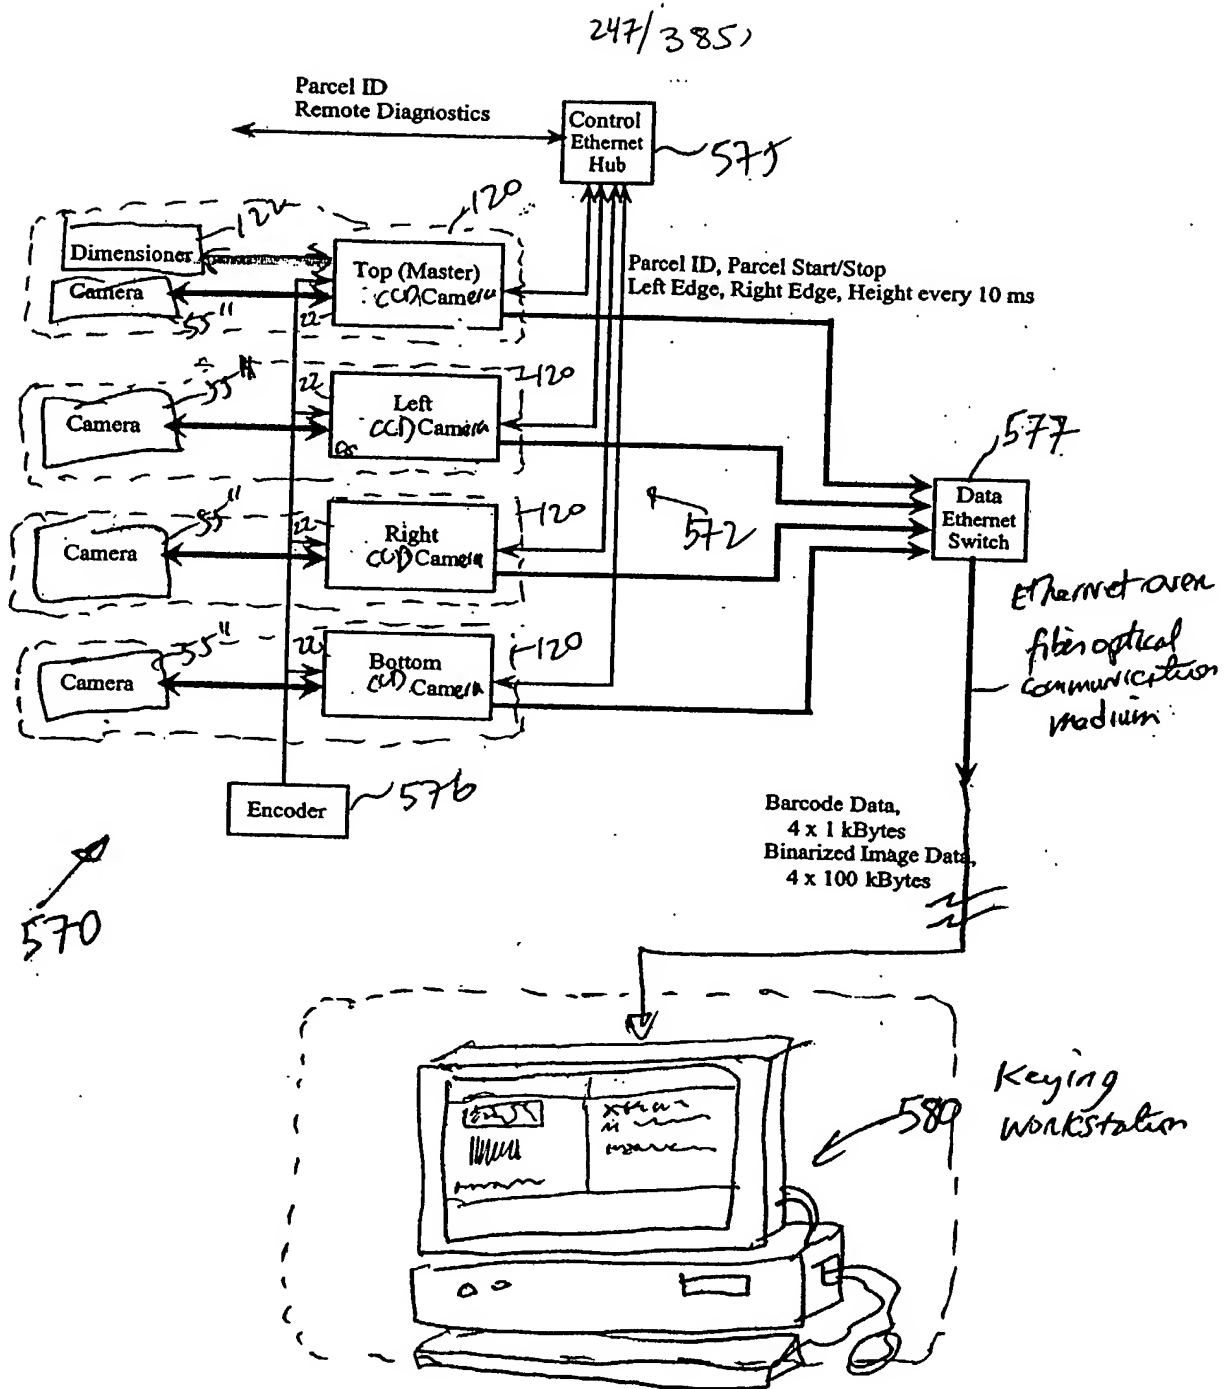 247/385
Parcel ID
Remote Diagnostics
Control
Ethernet
Hub
575
120
122
Dimensioner
Camera
55"
22
Top (Master)
CCD Camera
Parcel ID, Parcel Start/Stop
Left Edge, Right Edge, Height every 10 ms
120
55"
Camera
22
Left
CCD Camera
577
Data
Ethernet
Switch
120
55"
Camera
22
Right
CCD Camera
572
Ethernet over
fiber optical
communication
medium
120
55"
Camera
22
Bottom
CCD Camera
Encoder
576
Barcode Data,
4 x 1 kBytes
Binarized Image Data,
4 x 100 kBytes
570
580
Keying
workstation